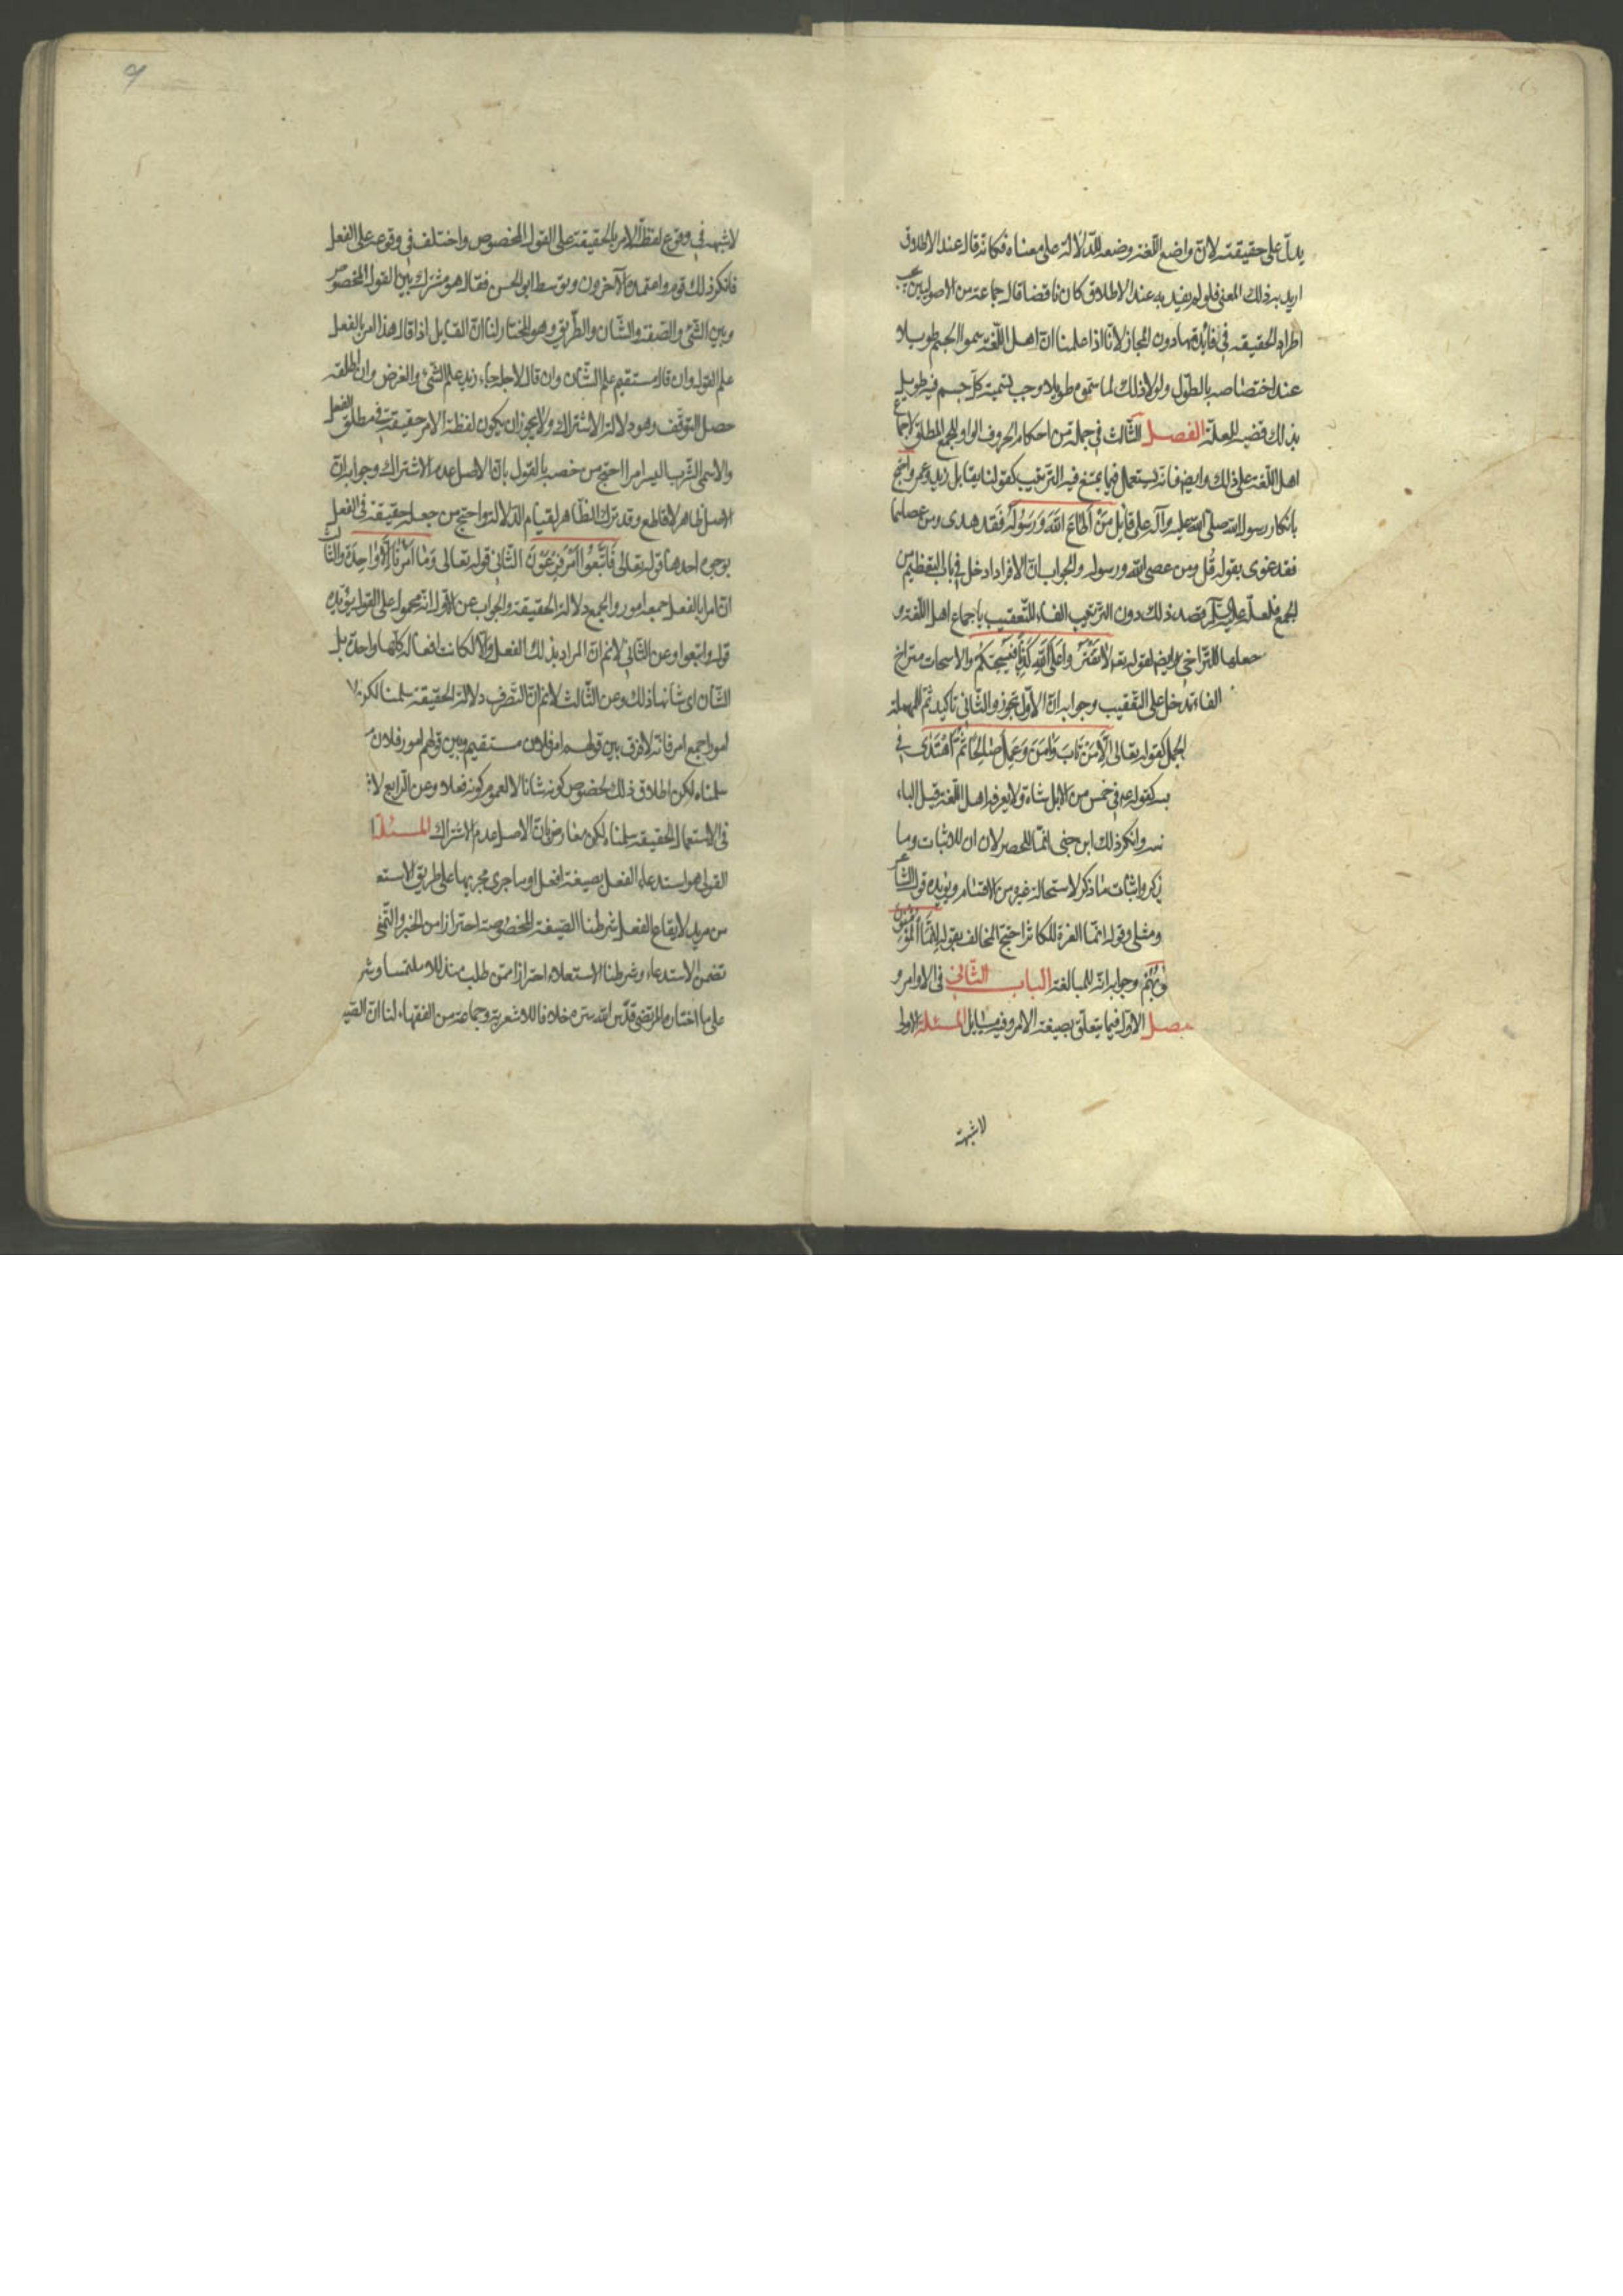 يدل على حقيقته لان واضع اللغة وضعه للدلالة على معناه فكانه قال عند الاطلاق
اريد به ذلك المعنى فلو لم يفيد به عند الاطلاق كان ناقضا قال جماعة من الاصوليين يجب
اطراد الحقيقة في فائدتها دون المجاز لانا اذا علمنا ان اهل اللغة سموا الجسم طويلا
عند اختصاصه بالطول ولولا ذلك لما سموه طويلا وجب تسمية كل جسم فيه طويل
بذلك قضية للعلة الفصل الثالث في جملة من احكام الحروف الواو للجمع المطلق لاجماع
اهل اللغة على ذلك وايضا فانه يستعمل فيما يمتنع فيه الترتيب كقولنا تقابل زيد وعمرو احتج
بانكار رسول الله صلى الله عليه وآله على قائل من اطاع الله ورسوله فقد هدى ومن عصاهما
فقد غوى بقوله قل ومن عصى الله ورسوله والجواب ان الافراد ادخل في باب التعظيم من
الجمع فلعله عليه السلام قصد ذلك دون الترتيب الفاء للتعقيب باجماع اهل اللغة و
جعلها للتراخي ايضا لقوله تعالى لا تفتروا على الله كذبا فيسحتكم والاسحات متراخ
الفاء تدخل على التعقيب وجوابه ان الاول تجوز والثاني تاكيد ثم للمهملة
الجمل كقوله تعالى الا من تاب وامن وعمل صالحا ثم اهتدى في
كقوله ع في خمس من الابل شاة ولا يعرفه اهل اللغة قيل الباء
وانكر ذلك ابن جنى انما للحصر لان ان للاثبات وما
ذكر واثبات ما ذكر لاستحالة غيره من الاقسام ويؤيده قول الشاعر
ومثلى وقوله انما العزة للكاثر احتج المخالف بقوله انما المؤمنون
وجوابه انه للمبالغة الباب الثاني في الاوامر و
الاول فيما يتعلق بصيغة الامر وفيه مسايل المسئلة الاولى
لا شبهة
لا شبهة في وقوع لفظة الامر بالحقيقة على القول المخصوص واختلف في وقوعه على الفعل
فانكر ذلك قوم واعتمده الآخرون وتوسط ابو الحسن فقال هو مشترك بين القول المخصوص
وبين الشئ والصفة والشان والطريق وهو المختار لنا ان القايل اذا قال هذا امر بالفعل
علم القول وان قال مستقيم علم الشان وان قال لاجله جاء زيد علم الشئ والغرض وان اطلقه
حصل التوقف وهو دلالة الاشتراك ولا يجوز ان يكون لفظة الامر حقيقة في مطلق الفعل
والا سمى الشرب اليسير امرا احتج من خصه بالقول بان الاصل عدم الاشتراك وجوابه ان
الاصل ظاهر لا قاطع وقد ترك الظاهر لقيام الدلالة واحتج من جعله حقيقة في الفعل
بوجوه احدها قوله تعالى فاتبعوا امر فرعون الثاني قوله تعالى وما امرنا الا واحدة والثالث
ان امرا بالفعل جمعه امور والجمع دلالة الحقيقة والجواب عن الاول انه محمول على القول يؤيده
قوله واتبعوا وعن الثاني لا نم ان المراد بذلك الفعل والا لكانت افعاله كلها واحدة بل
الشان اى شانها ذلك وعن الثالث لا نم ان التصرف دلالة الحقيقة سلمنا لكن لا
امور جمع امر فانه لا فرق بين قولهم امر فلان مستقيم وبين قولهم امور فلان
سلمناه لكن اطلاق ذلك لخصوص كونه شانا لا لعموم كونه فعلا وعن الرابع لا
في الاستعمال الحقيقة سلمنا لكن معارض بان الاصل عدم الاشتراك المسئلة
القول هو استدعاء الفعل بصيغة افعل او ما جرى مجريها على طريق الاستع
من مريد لايقاع الفعل شرطنا الصيغة المخصوصة احترازا من الخبر والتمنى
تضمن الاستدعاء وشرطنا الاستعلاء احترازا ممن طلب متذللا ملتمسا وشر
على ما اختاره المرتضى قدس الله سره خلافا للاشعرية وجماعة من الفقهاء لنا ان الصيـ